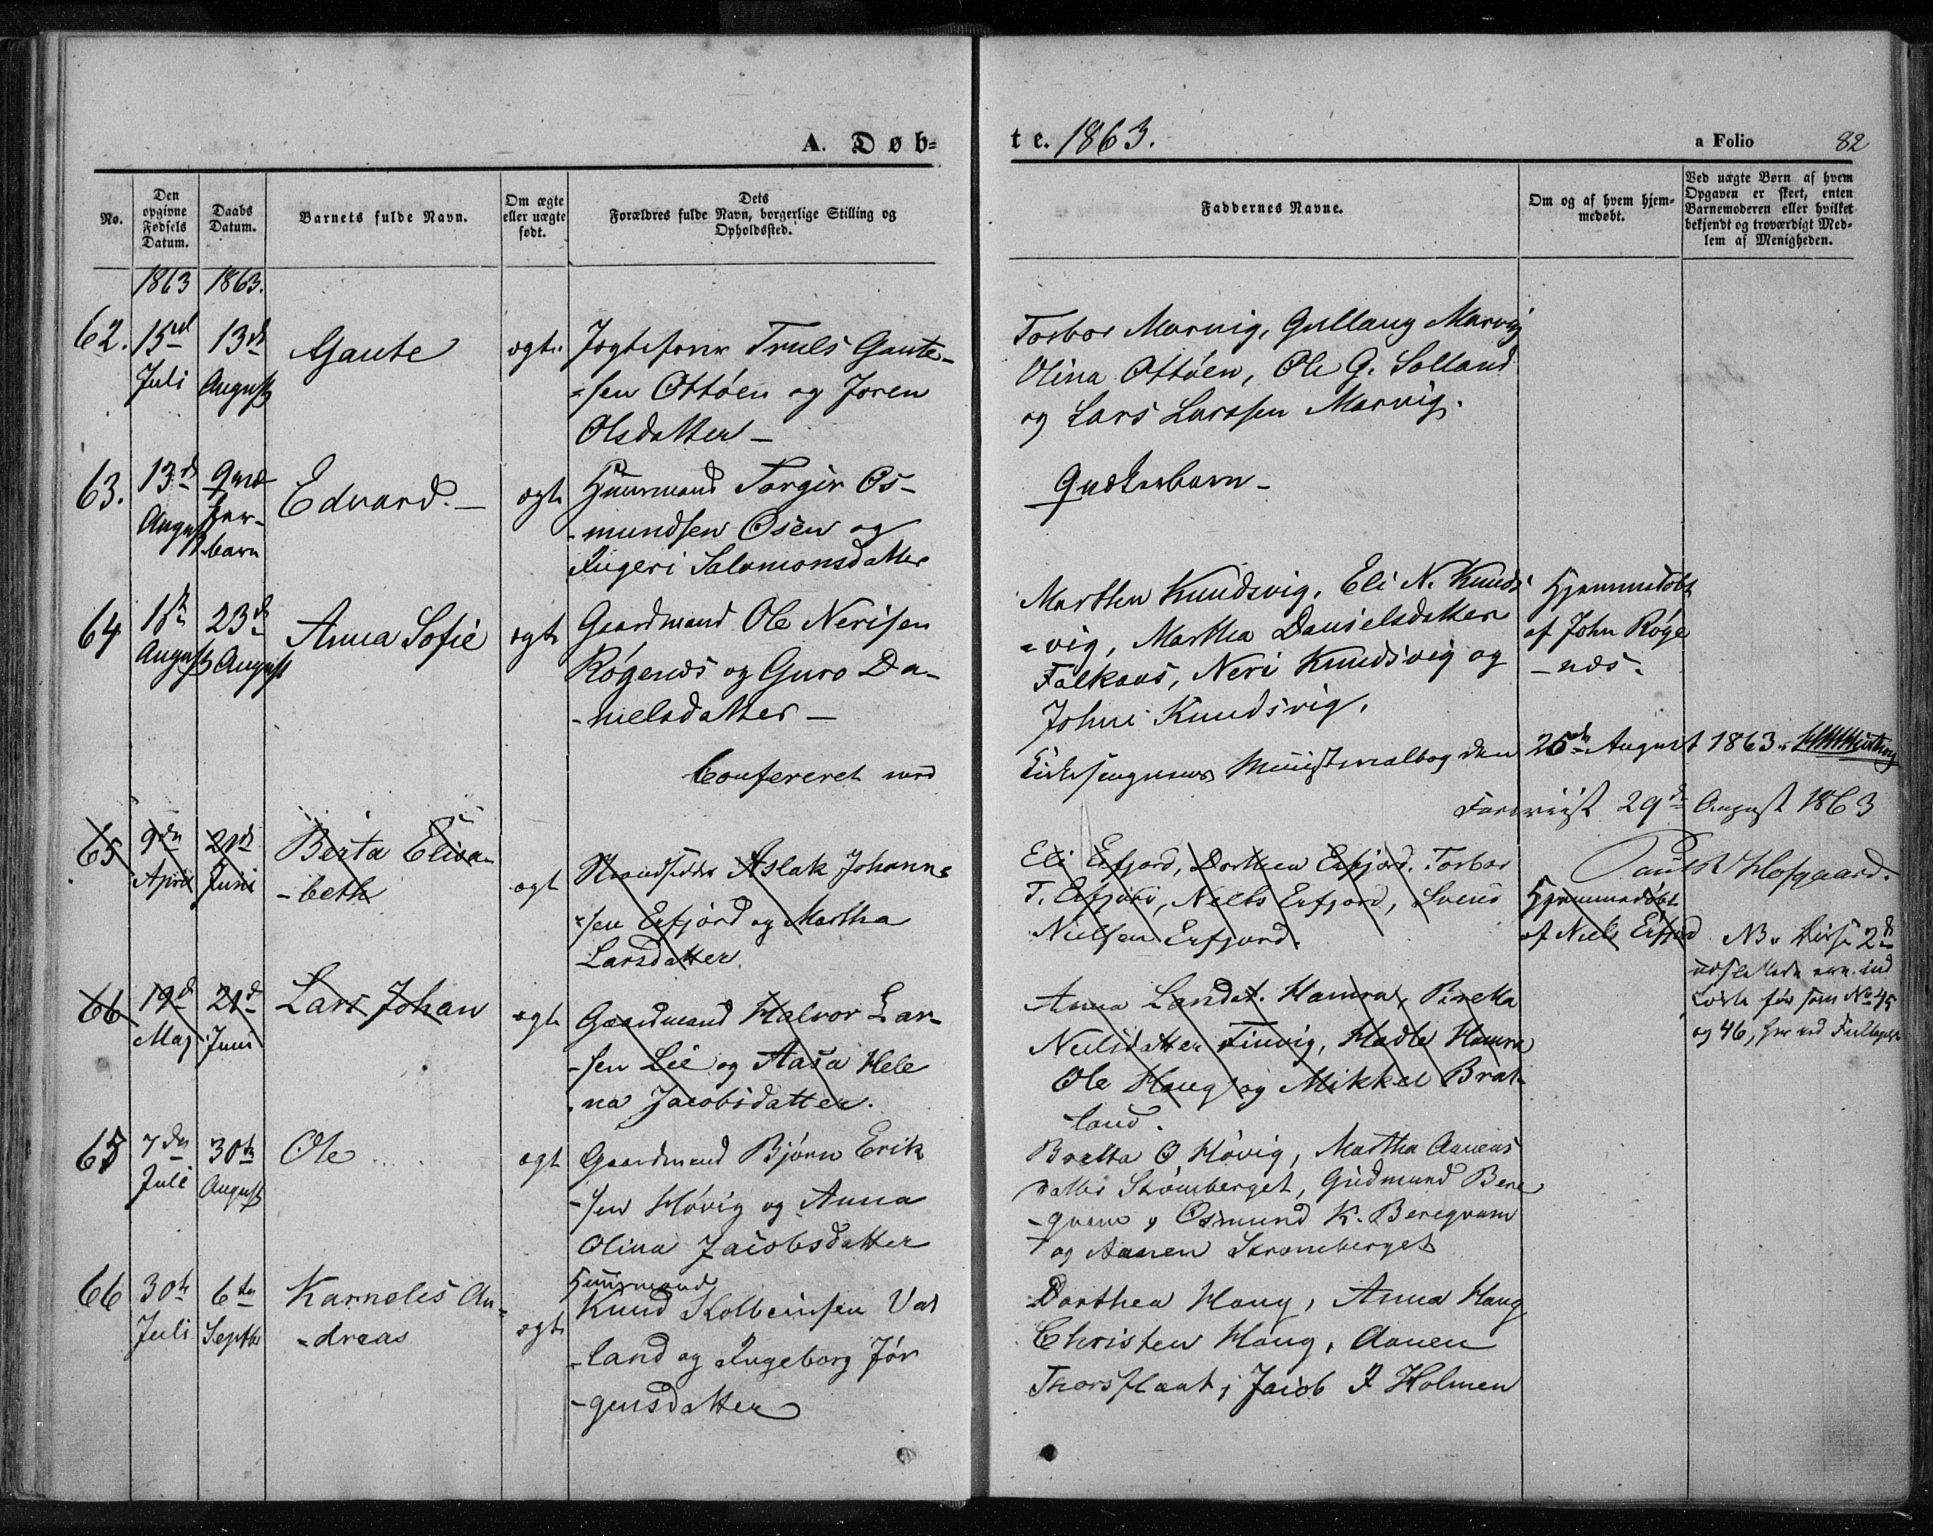 A. Døb-
te. 1863.
a Folio 82
No.
Den opgivne Fødsels Datum.
Daabs Datum.
Barnets fulde Navn.
Om ægte eller uægte født.
Dets Forældres fulde Navn, borgerlige Stilling og Opholdssted.
Faddernes Navne.
Om og af hvem hjem-
medøbt.
Ved uægte Børn af hvem
Opgaven er skeet, enten
Barnemoderen eller hvilket
bekjendt og troværdigt Med-
lem af Menigheden.
1863 1863.
62.
15de Juli
13de August
Gaute
ægte
Truls Gaute-
-sen Ottøen og Joren
Olsdatter -
Torbor Marvig, Gullaug Marvig
Olina Ottøen, Ole G. Solland
og Lars Larssen Marvig.
63.
13de August
Qvæ-
ker-
barn
Edvard. -
ægte
Huusmand Torgir Os-
-mundsen Osen og
Ingeri Salomonsdatter
Qvækerbarn -
64
1ste August
23de August
Anna Sofie
ægte
Gaardmand Ole Nerisen
Røgenæs og Guro Da-
-nielsdatter -
Marthen Knudsvig, Eli N. Knuds
-vig, Martha Danielsdatter
Falkaas, Neri Knudsvig og
Johne Knudsvig.
Hjemmedøbt
af John Røge
-næs.
Confereret med
Kirkesangerens Ministerialbog den 26de August 1863.
Foreviist 29de August 1863
Paul Hofgaard.
65
9de April
21de Juni
Berta Elisa-
-beth
ægt
Strandsidder Aslak Johann-
-sen Erfjord og Martha
Larsdatter
Eli Erfjord, Dorthea Erfjord. Torbor
T. Erfjord, Niels Erfjord, Svend
Nielsen Erfjord.
Hjemmedøbt
af Niels Erfjord
NB. Disse 2de
udslettede ere ind
førte før som No 45
og 46, her ved Feiltagelse
66
19de Maj
21de Juni
Lars Johan
ægte
Gaardmand Halvor Lar-
-sen Lie og Aasa Hele
-na Jacobsdatter.
Anna Landst. Hamra, Bretta
Nielsdatter Finvig, Hadle Hamra
Ole Haug og Mikkel Brat-
-land.
65
7de Juli
30te August
Ole
ægt
Gaardmand Bjørn Erik
-sen Høvig og Anna
Olina Jacobsdatter
Bretta O Høvig, Martha Aanens
datter Strømberget, Gudmund Bere
-qvam, Osmund K. Bereqvam
og Aanen Strømberget
66
30te Juli
6te Septbr
Karnelis An-
-dreas
ægte
Huusmand
Knud Kolbeinsen Vat
-land og Ingeborg Jør
-gensdatter
Dorthea Haug, Anna Haug
Christen Haug, Aanen
Thorsflaat, Jacob J Holmen